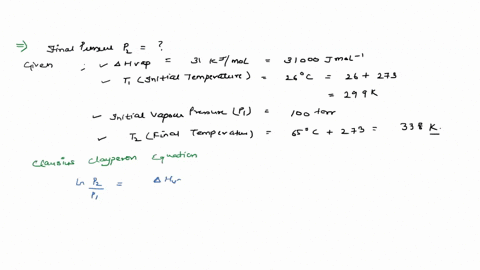 ⇒ Final Pressure P₂ = ?
Given : ✓ ΔHvap = 31 KJ/mol = 31000 J mol⁻¹
✓ T₁ (Initial Temperature) = 26°C = 26 + 273
= 299 K
✓ Initial Vapour Pressure (P₁) = 100 torr
✓ T₂ (Final Temperature) = 65°C + 273 = 338 K.
Clausius Clayperon Equation
ln P₂/P₁ = ΔHv